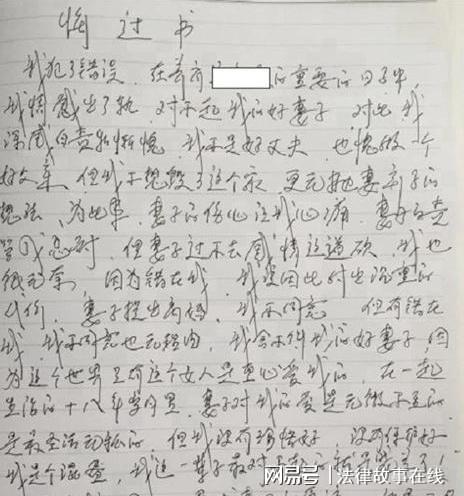 悔过书
我犯了错误，在养育 的重要的日子中，
我情感出了轨，对不起我的好妻子，对此我
深感自责和惭愧，我不是好丈夫，也愧做一个
好父亲，但我不想毁了这个家，更无抛妻弃子的
想法，为此事，妻子的伤心让我心痛，妻
忍耐，但妻子过不去感情这道砍，我也
很无奈，因为错在我，我要因此付出沉重的
代价，妻子提出离婚，我不同意，但有错在
我，我不同意也无理由，我舍不得我的好妻子，因
为这个世界上只有这个女人是真心爱我的，在一起
生活的十八年岁月里，妻子对我的爱是无微不至的
是最圣洁无私的，但我没有珍惜好，没有保护好
我是个混蛋，我这一辈子最对不起的
网易号 | 法律故事在线